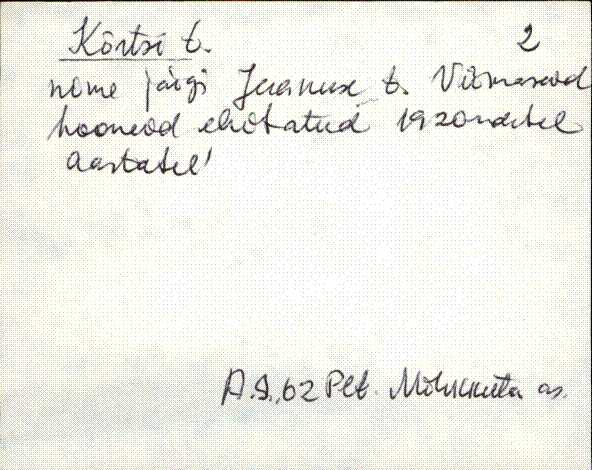 Kõrtsi t. 2
nime järgi Jaanuse t. Viimased
hooned ehitatud 1920ndatel
aastatel
A.S., 62 Plt. Mõhküla as.